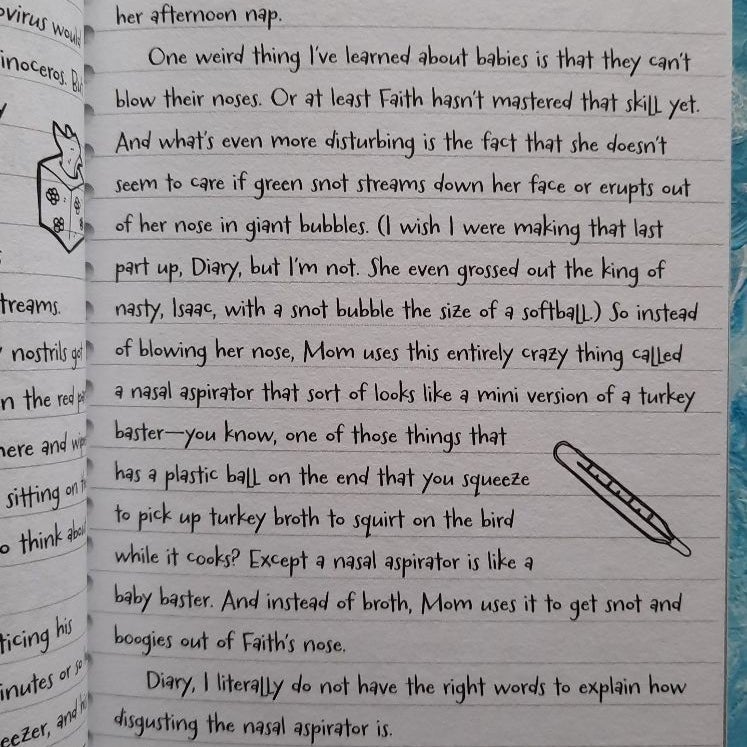 ovirus would
inoceros. Bu
y
treams.
nostrils get
n the red
here and
sitting on
o think about
ticing his
inutes or so
eezer, and
her afternoon nap.
One weird thing I've learned about babies is that they can't
blow their noses. Or at least Faith hasn't mastered that skill yet.
And what's even more disturbing is the fact that she doesn't
seem to care if green snot streams down her face or erupts out
of her nose in giant bubbles. (I wish I were making that last
part up, Diary, but I'm not. She even grossed out the king of
nasty, Isaac, with a snot bubble the size of a softball.) So instead
of blowing her nose, Mom uses this entirely crazy thing called
a nasal aspirator that sort of looks like a mini version of a turkey
baster—you know, one of those things that
has a plastic ball on the end that you squeeze
to pick up turkey broth to squirt on the bird
while it cooks? Except a nasal aspirator is like a
baby baster. And instead of broth, Mom uses it to get snot and
boogies out of Faith's nose.
Diary, I literally do not have the right words to explain how
disgusting the nasal aspirator is.